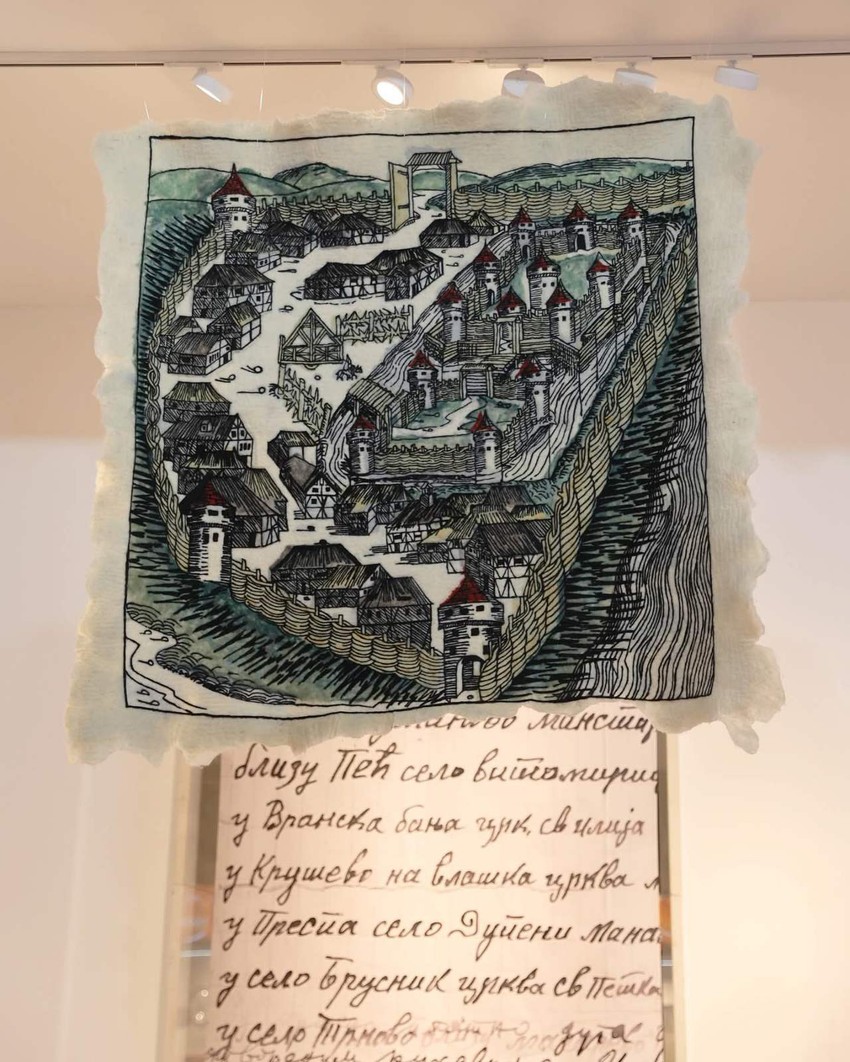 манстир
близу Пећ село витомирица
у Вранска бања црк. св илија
у Крушево на влашка црква
у Преспа село Дупени мана
у село Брусник црква св Петка
у село Трново